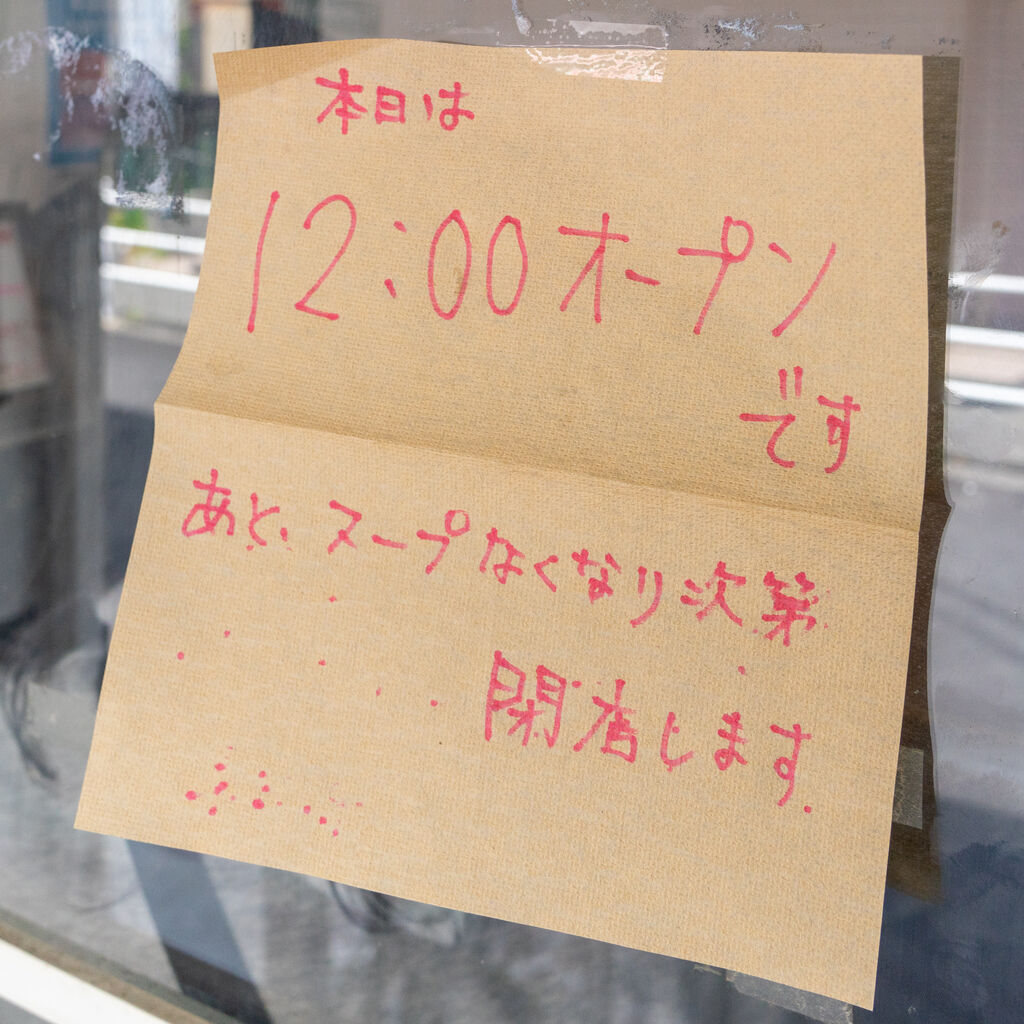 本日は
12:00オープン
です
あと、スープなくなり次第
閉店します.